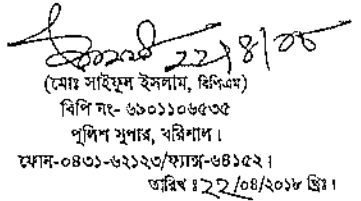 22/8/১৮
(মোঃ সাইফুল ইসলাম, বিপিএম)
বিপি নং- ৬৯০১১০৬৫৩৫
পুলিশ সুপার, বরিশাল।
ফোন-০৪৩১-৬২১২৩/ফ্যাক্স-৬৪১৫২।
তারিখ ঃ 22/০৪/২০১৮ খ্রিঃ।